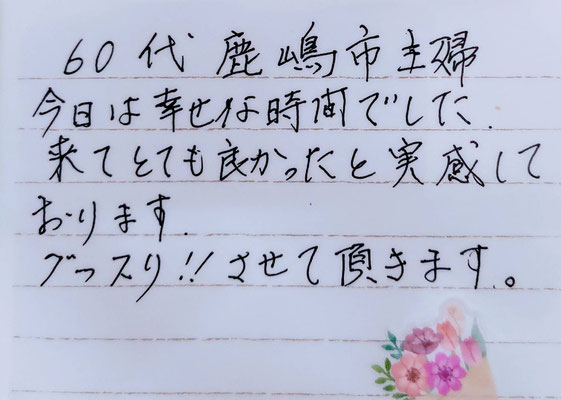 60代 鹿嶋市主婦
今日は幸せな時間でした.
来てとても良かったと実感して
おります.
グッスリ!!させて頂きます。